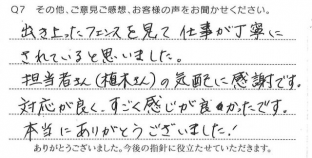 Q7 その他、ご意見ご感想、お客様の声をお聞かせください。
出き上ったフェンスを見て仕事が丁寧に
されていると思いました。
担当者さん(植木さん)の気配に感謝です。
対応が良く、すごく感じが良かったです。
本当にありがとうございました!
ありがとうございました。今後の指針に役立たせていただきます。